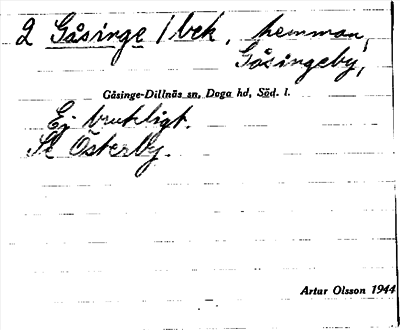 2 Gåsinge /bek, hemman,
Gåsingeby,
Gåsinge-Dillnäs sn, Daga hd, Söd. l.
Ej brukligt.
Se Österby.
Artur Olsson 1944